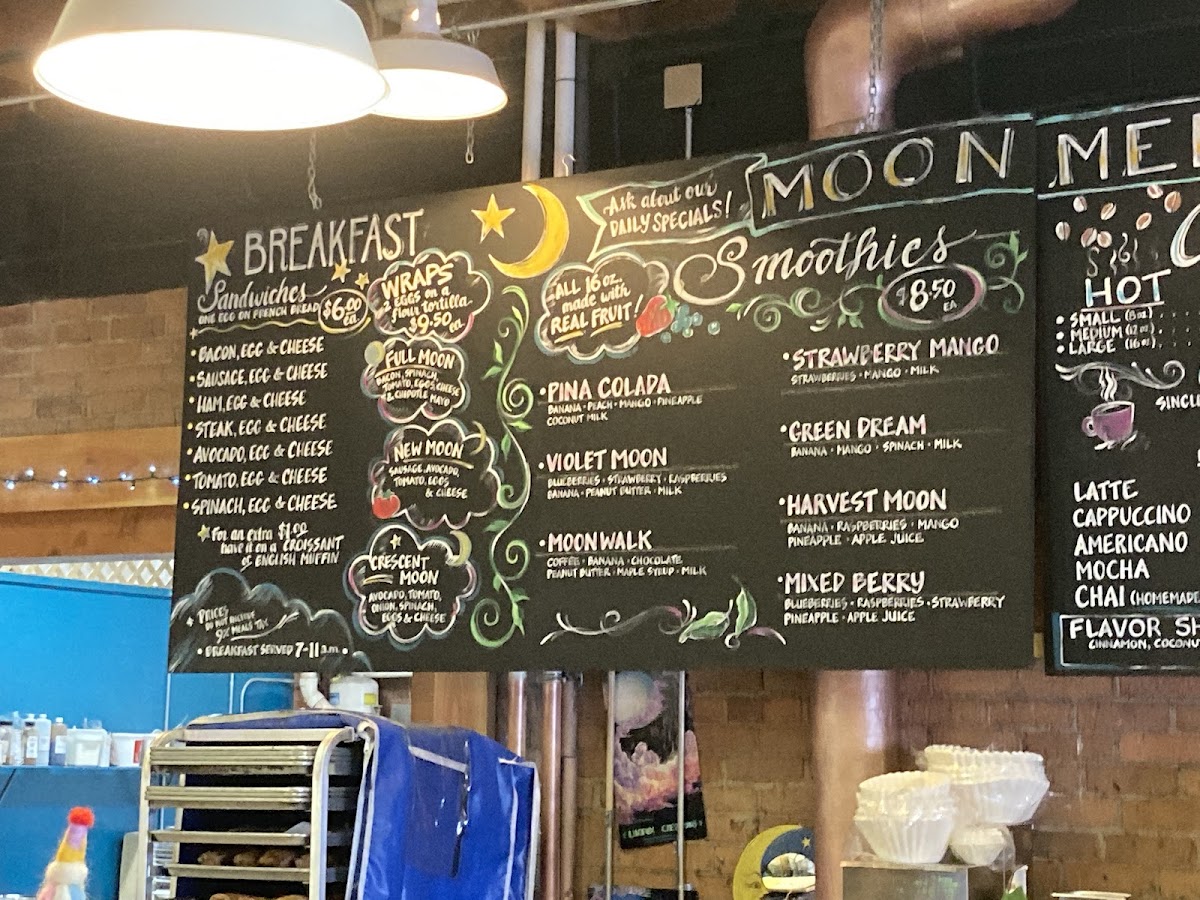 BREAKFAST
Sandwiches
ONE EGG ON FRENCH BREAD
$6.00
ea.
• BACON, EGG & CHEESE
• SAUSAGE, EGG & CHEESE
• HAM, EGG & CHEESE
• STEAK, EGG & CHEESE
• AVOCADO, EGG & CHEESE
• TOMATO, EGG & CHEESE
• SPINACH, EGG & CHEESE
For an extra $1.00
have it on a CROISSANT
or ENGLISH MUFFIN
PRICES
DO NOT INCLUDE
9% MEALS TAX
• BREAKFAST SERVED 7-11 a.m. •
WRAPS
2 EGGS on a
flour tortilla-
$9.50 ea.
FULL MOON
BACON, SPINACH,
TOMATO, EGGS, CHEESE
& CHIPOTLE MAYO
NEW MOON
SAUSAGE, AVOCADO,
TOMATO, EGGS
& CHEESE
CRESCENT
MOON
AVOCADO, TOMATO,
ONION, SPINACH,
EGGS & CHEESE
Ask about our
DAILY SPECIALS!
MOON
Smoothies
$8.50
EA
ALL 16 oz.
made with
REAL FRUIT!
• PINA COLADA
BANANA • PEACH • MANGO • PINEAPPLE
COCONUT MILK
• VIOLET MOON
BLUEBERRIES • STRAWBERRY • RASPBERRIES
BANANA • PEANUT BUTTER • MILK
• MOONWALK
COFFEE • BANANA • CHOCOLATE
PEANUT BUTTER • MAPLE SYRUP • MILK
• STRAWBERRY MANGO
STRAWBERRIES • MANGO • MILK
• GREEN DREAM
BANANA • MANGO • SPINACH • MILK
• HARVEST MOON
BANANA • RASPBERRIES • MANGO
PINEAPPLE • APPLE JUICE
• MIXED BERRY
BLUEBERRIES • RASPBERRIES • STRAWBERRY
PINEAPPLE • APPLE JUICE
HOT
• SMALL (8oz) . . .
• MEDIUM (12 oz) . . .
• LARGE (16 oz) . . .
LATTE
CAPPUCCINO
AMERICANO
MOCHA
CHAI (HOMEMADE
FLAVOR SH
CINNAMON, COCONUT